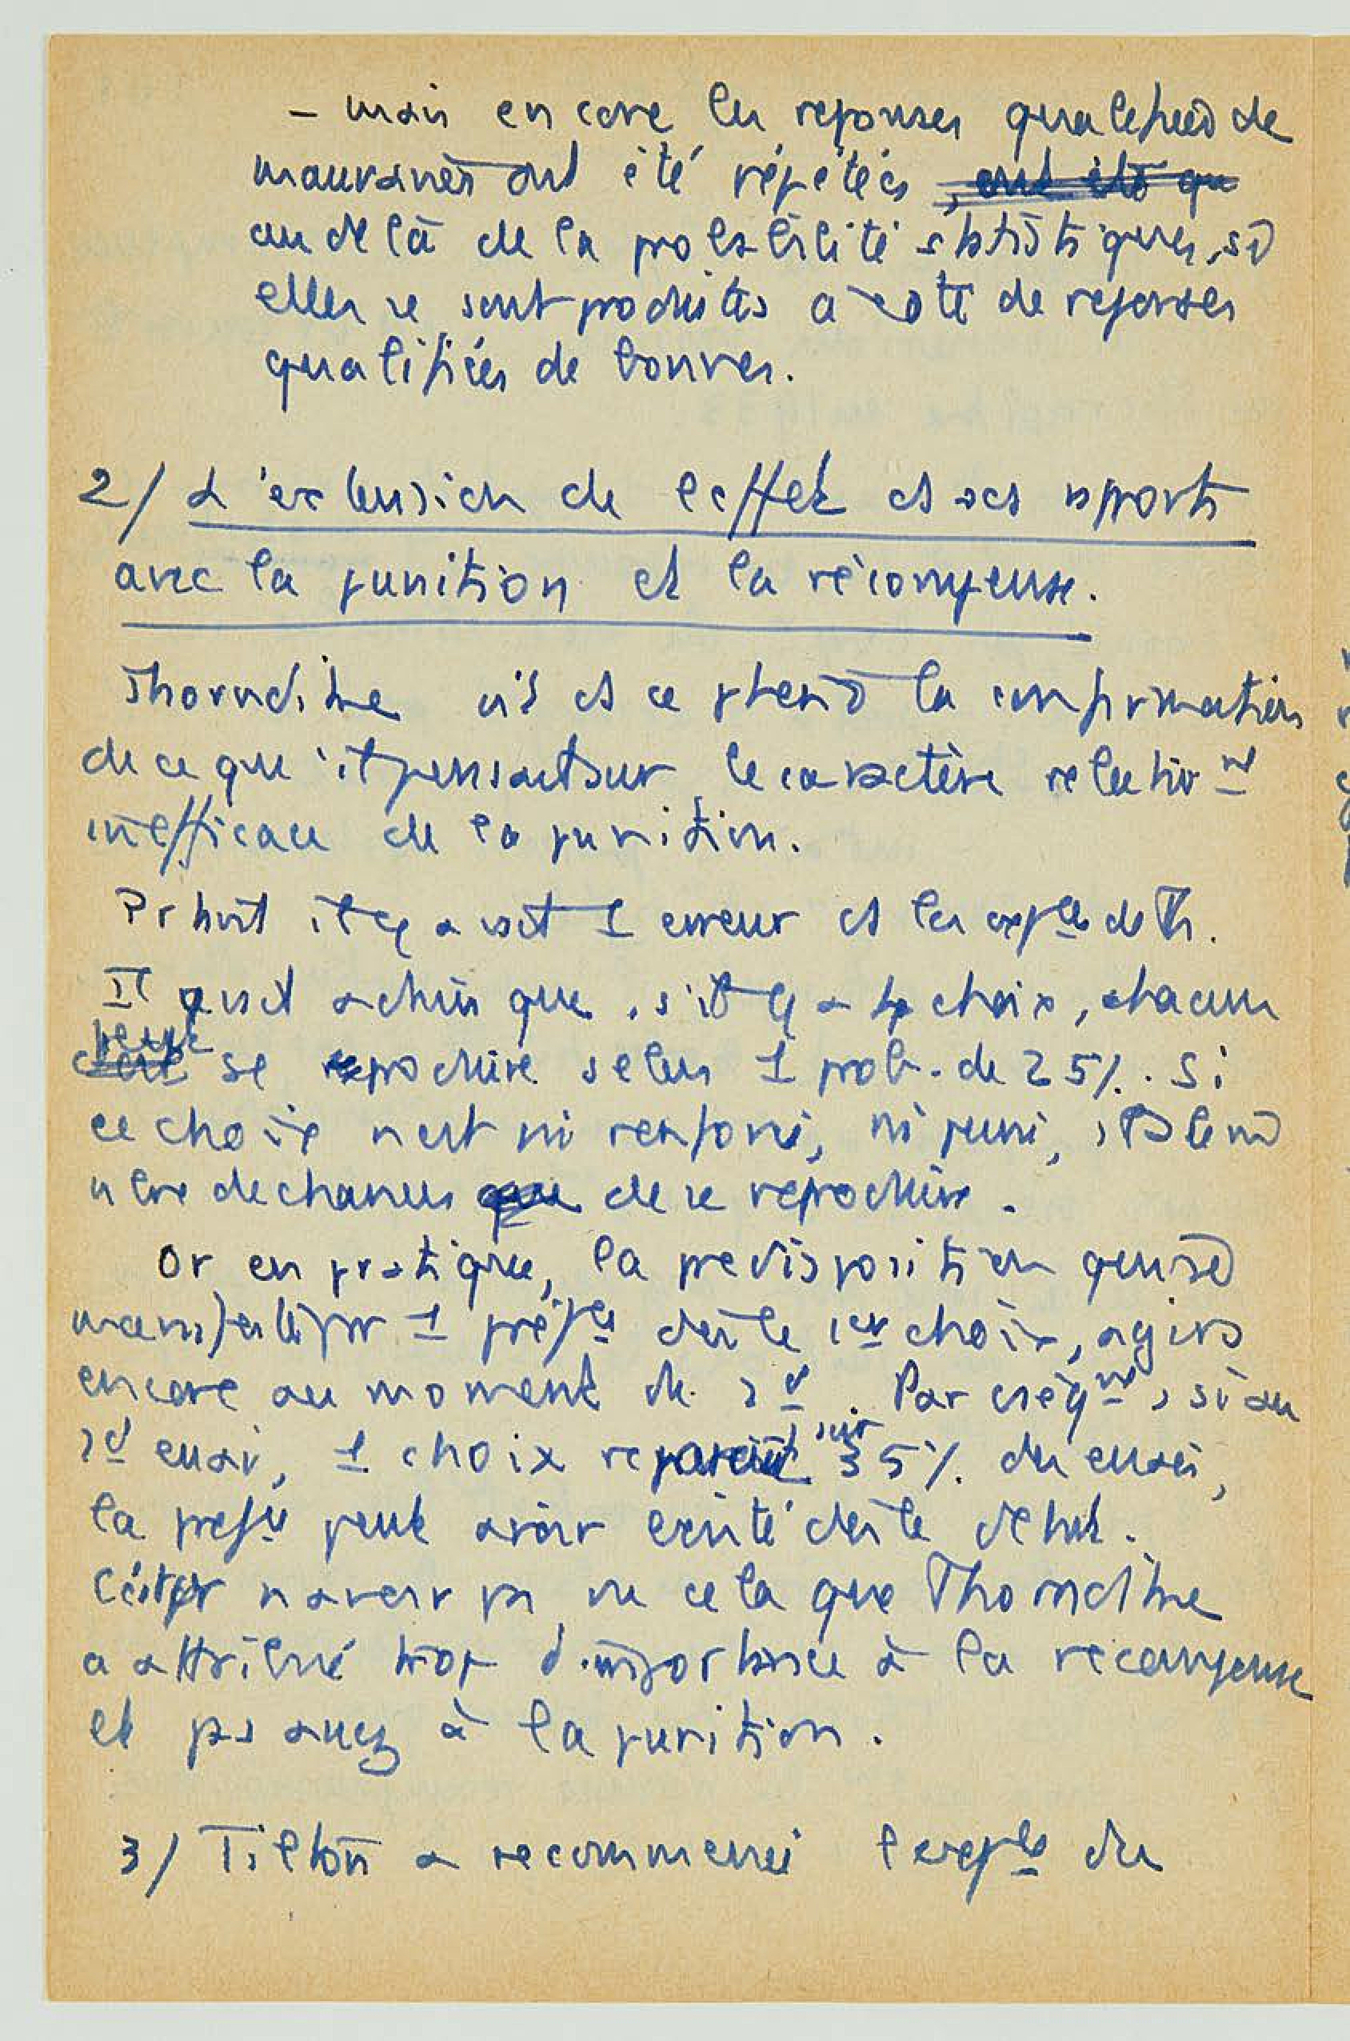 - mais encore les réponses qualifiées de
mauvaises ont été répétées
au delà de la probabilité statistiques, si
elles se sont produites a coté de reponses
qualifiées de bonnes.
2/ L'extension de l'effet et ses rapports
avec la punition et la récompense.
Thorndike vit ds ce phen la confirmation
de ce que il pensait sur le caractère relativnt
inefficace de la punition.
Pr tant il y avait 1 erreur ds les expces de Th.
Il avait admis que, s'il y a 4 choix, chacun
peut se reproduire selon 1 prob. de 25%. Si
ce choix n'est ni renforcé, ni puni,
de chances de se reproduire.
Or en pratique, la predisposition qui se
manifeste pr 1 préfce dès le 1er choix, agira
encore au moment du 2d. Par cséqnt, si au
2d essai, 1 choix reparait sur 35% des essais,
la prefce peut avoir existé dès le debut.
C'est pr n'avoir pas vu cela que Thorndike
a attribué trop d'importance à la recompense
et pas assez à la punition.
3/ Tilton a recommencé l'expce du